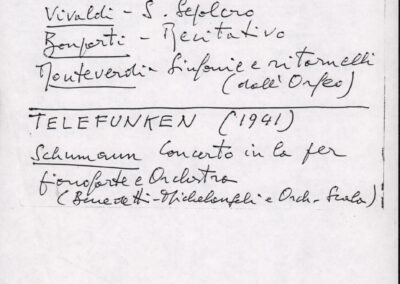 Vivaldi - S. Sepolcro
Bonporti - Recitativo
Monteverdi - Sinfonie e ritornelli
(dall'Orfeo)
TELEFUNKEN (1941)
Schumann Concerto in la per
pianoforte e Orchestra
(Benedetti-Michelangeli e Orch. Scala)